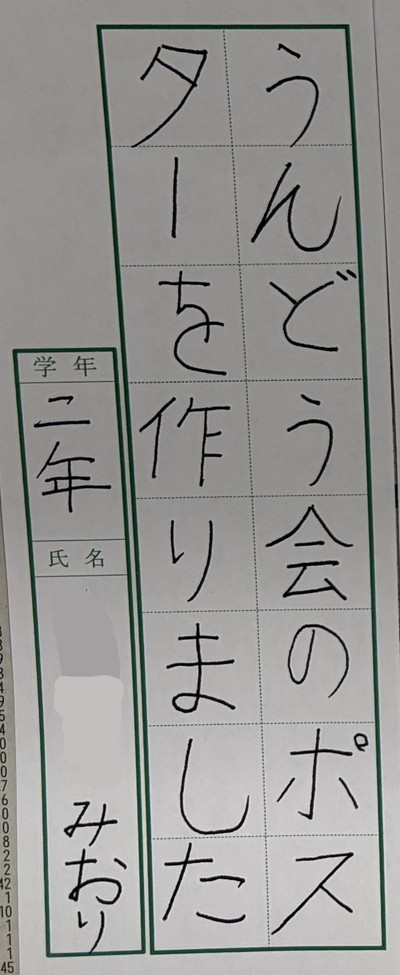 うんどう会のポス
ターを作りました
学年
二年
氏名
みおり